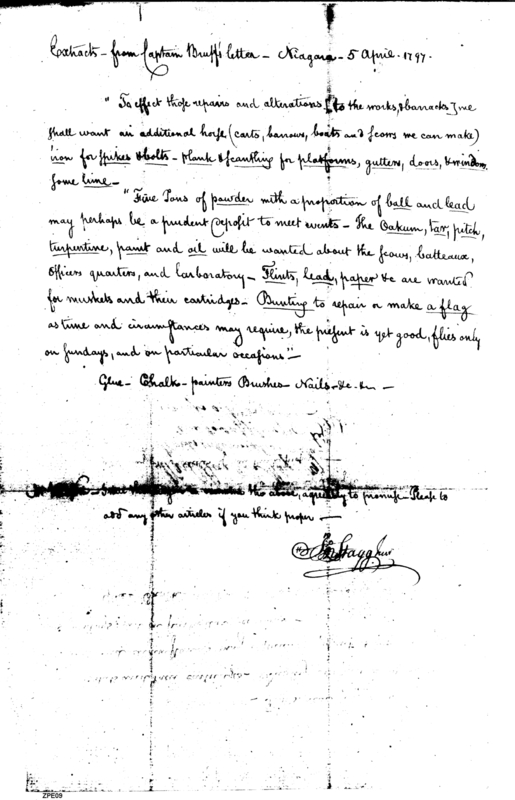 Extracts - from Captain Bruff's letter - Niagara - 5 April. 1797.
"To effect those repairs and alterations [to the works, & barracks] we
shall want an additional horse (carts, barrows, boats and scows we can make)
iron for spikes & bolts - plank & scantling for platforms, gutters, doors, & windows
some lime -
"Five Tons of powder with a proportion of ball and lead
may perhaps be a prudent deposit to meet events - The Oakum, tar, pitch,
turpentine, paint and oil will be wanted about the scows, batteaux,
officers quarters, and Larboratory - Flints, lead, paper &c are wanted
for muskets and their cartridges - Bunting to repair or make a flag
as time and circumstances may require, the present is yet good, flies only
on sundays, and on particular occasions" -
Glue - Chalk - painters Brushes Nails &c. &c -
the above, agreeably to promise - Please to
add any other articles if you think proper -
Jno Stagg Junr
ZPE09